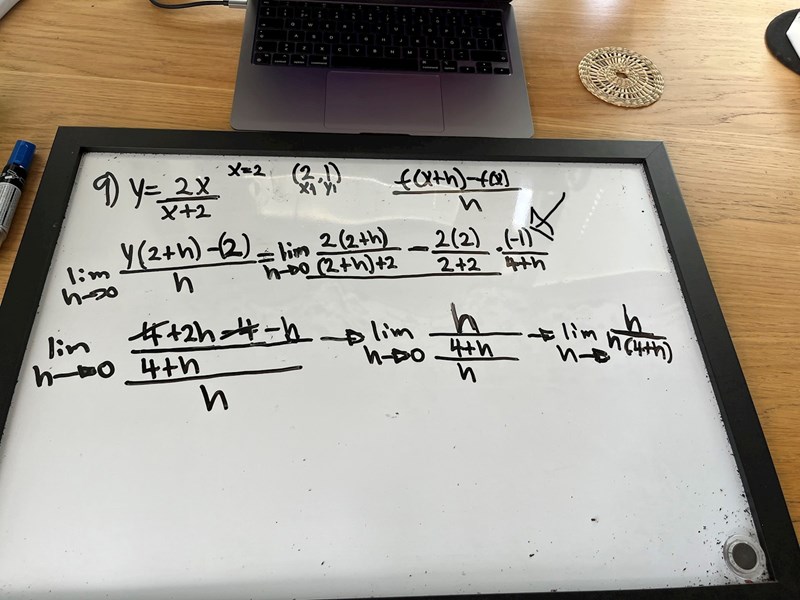 9) y = 2x / x+2   x=2   (2, 1) x₁ y₁   f(x+h)-f(x) / h
lim h→0 y(2+h)-(2) / h = lim h→0 2(2+h) / (2+h)+2 - 2(2) / 2+2 · (-1) / 4+h
lim h→0 4+2h-4-h / 4+h / h → lim h→0 h / 4+h / h → lim h→0 h / h(4+h)